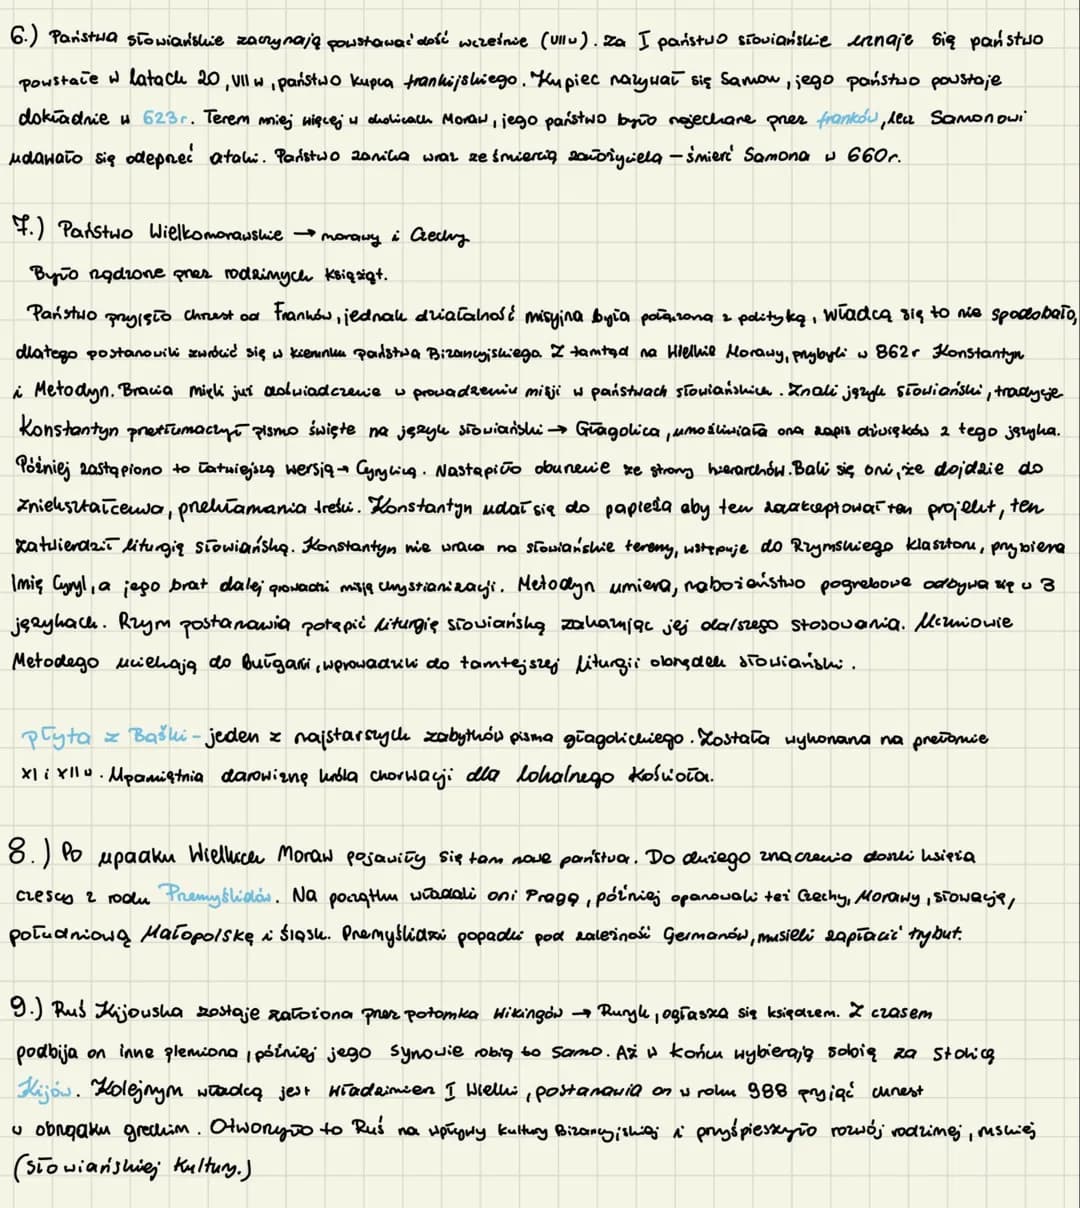 6.) Państwa słowiańskie zaczynają powstawać dość wcześnie (VII w). Za I państwo słowiańskie uznaje się państwo
powstałe w latach 20, VII w, państwo kupca frankijskiego. Kupiec nazywał się Samon, jego państwo powstaje
dokładnie w 623r. Teren mniej więcej w okolicach Moraw, jego państwo było najechane przez franków, lecz Samonowi
udawało się odeprzeć ataki. Państwo zanika wraz ze śmiercią założyciela – śmierć Samona w 660r.
7.) Państwo Wielkomorawskie → morawy i Czechy
Było rządzone przez rodzimych książąt.
Państwo przyjęło chrzest od Franków, jednak działalność misyjna była połączona z polityką, władcą się to nie spodobało,
dlatego postanowili zwrócić się w kierunku państwa Bizancyjskiego. Z tamtąd na Wielkie Morawy, przybyli w 862r Konstantyn
i Metodyn. Bracia mieli już doświadczenie w prowadzeniu misji w państwach słowiańskich. Znali język słowiański, tradycje
Konstantyn przetłumaczył pismo święte na język słowiański → Głagolica, umożliwiała ona zapis dźwięków z tego języka.
Później zastąpiono to łatwiejszą wersją → Cyrylicą. Nastąpiło oburzenie ze strony hierarchów. Bali się oni, że dojdzie do
zniekształcenia, przekłamania treści. Konstantyn udał się do papieża aby ten zaakceptował ten projekt, ten
zatwierdził liturgię słowiańską. Konstantyn nie wraca na słowiańskie tereny, wstępuje do Rzymskiego klasztoru, przybiera
imię Cyryl, a jego brat dalej prowadzi misję chrystianizacji. Metodyn umiera, nabożeństwo pogrzebowe odbywa się w 3
językach. Rzym postanawia potępić liturgię słowiańską zakazując jej dalszego stosowania. Uczniowie
Metodego uciekają do Bułgarii, wprowadzili do tamtejszej liturgii obrządek słowiański.
płyta z Baški – jeden z najstarszych zabytków pisma głagolickiego. Została wykonana na przełomie
XI i XII w. Upamiętnia darowiznę króla chorwacji dla lokalnego Kościoła.
8.) Po upadku Wielkich Moraw pojawiły się tam nowe państwa. Do dużego znaczenia doszli księża
czescy z rodu Przemyślidów. Na początku władali oni Pragą, później opanowali też Czechy, Morawy, słowację,
południową Małopolskę i śląsk. Przemyślidzi popadli pod zależność Germanów, musieli zapłacić trybut.
9.) Ruś Kijowska zostaje założona przez potomka Wikingów → Ruryk, ogłasza się księdzem. Z czasem
podbija on inne plemiona, później jego synowie robią to samo. Aż w końcu wybierają sobią za stolicą
Kijów. Kolejnym władcą jest Władzimierz I Wielki, postanawia on w roku 988 przyjąć chrzest
w obrządku greckim. Otworzyło to Ruś na wpływy kultury Bizancyjskiej i przyśpieszyło rozwój rodzimej, ruskiej
(słowiańskiej kultury.)